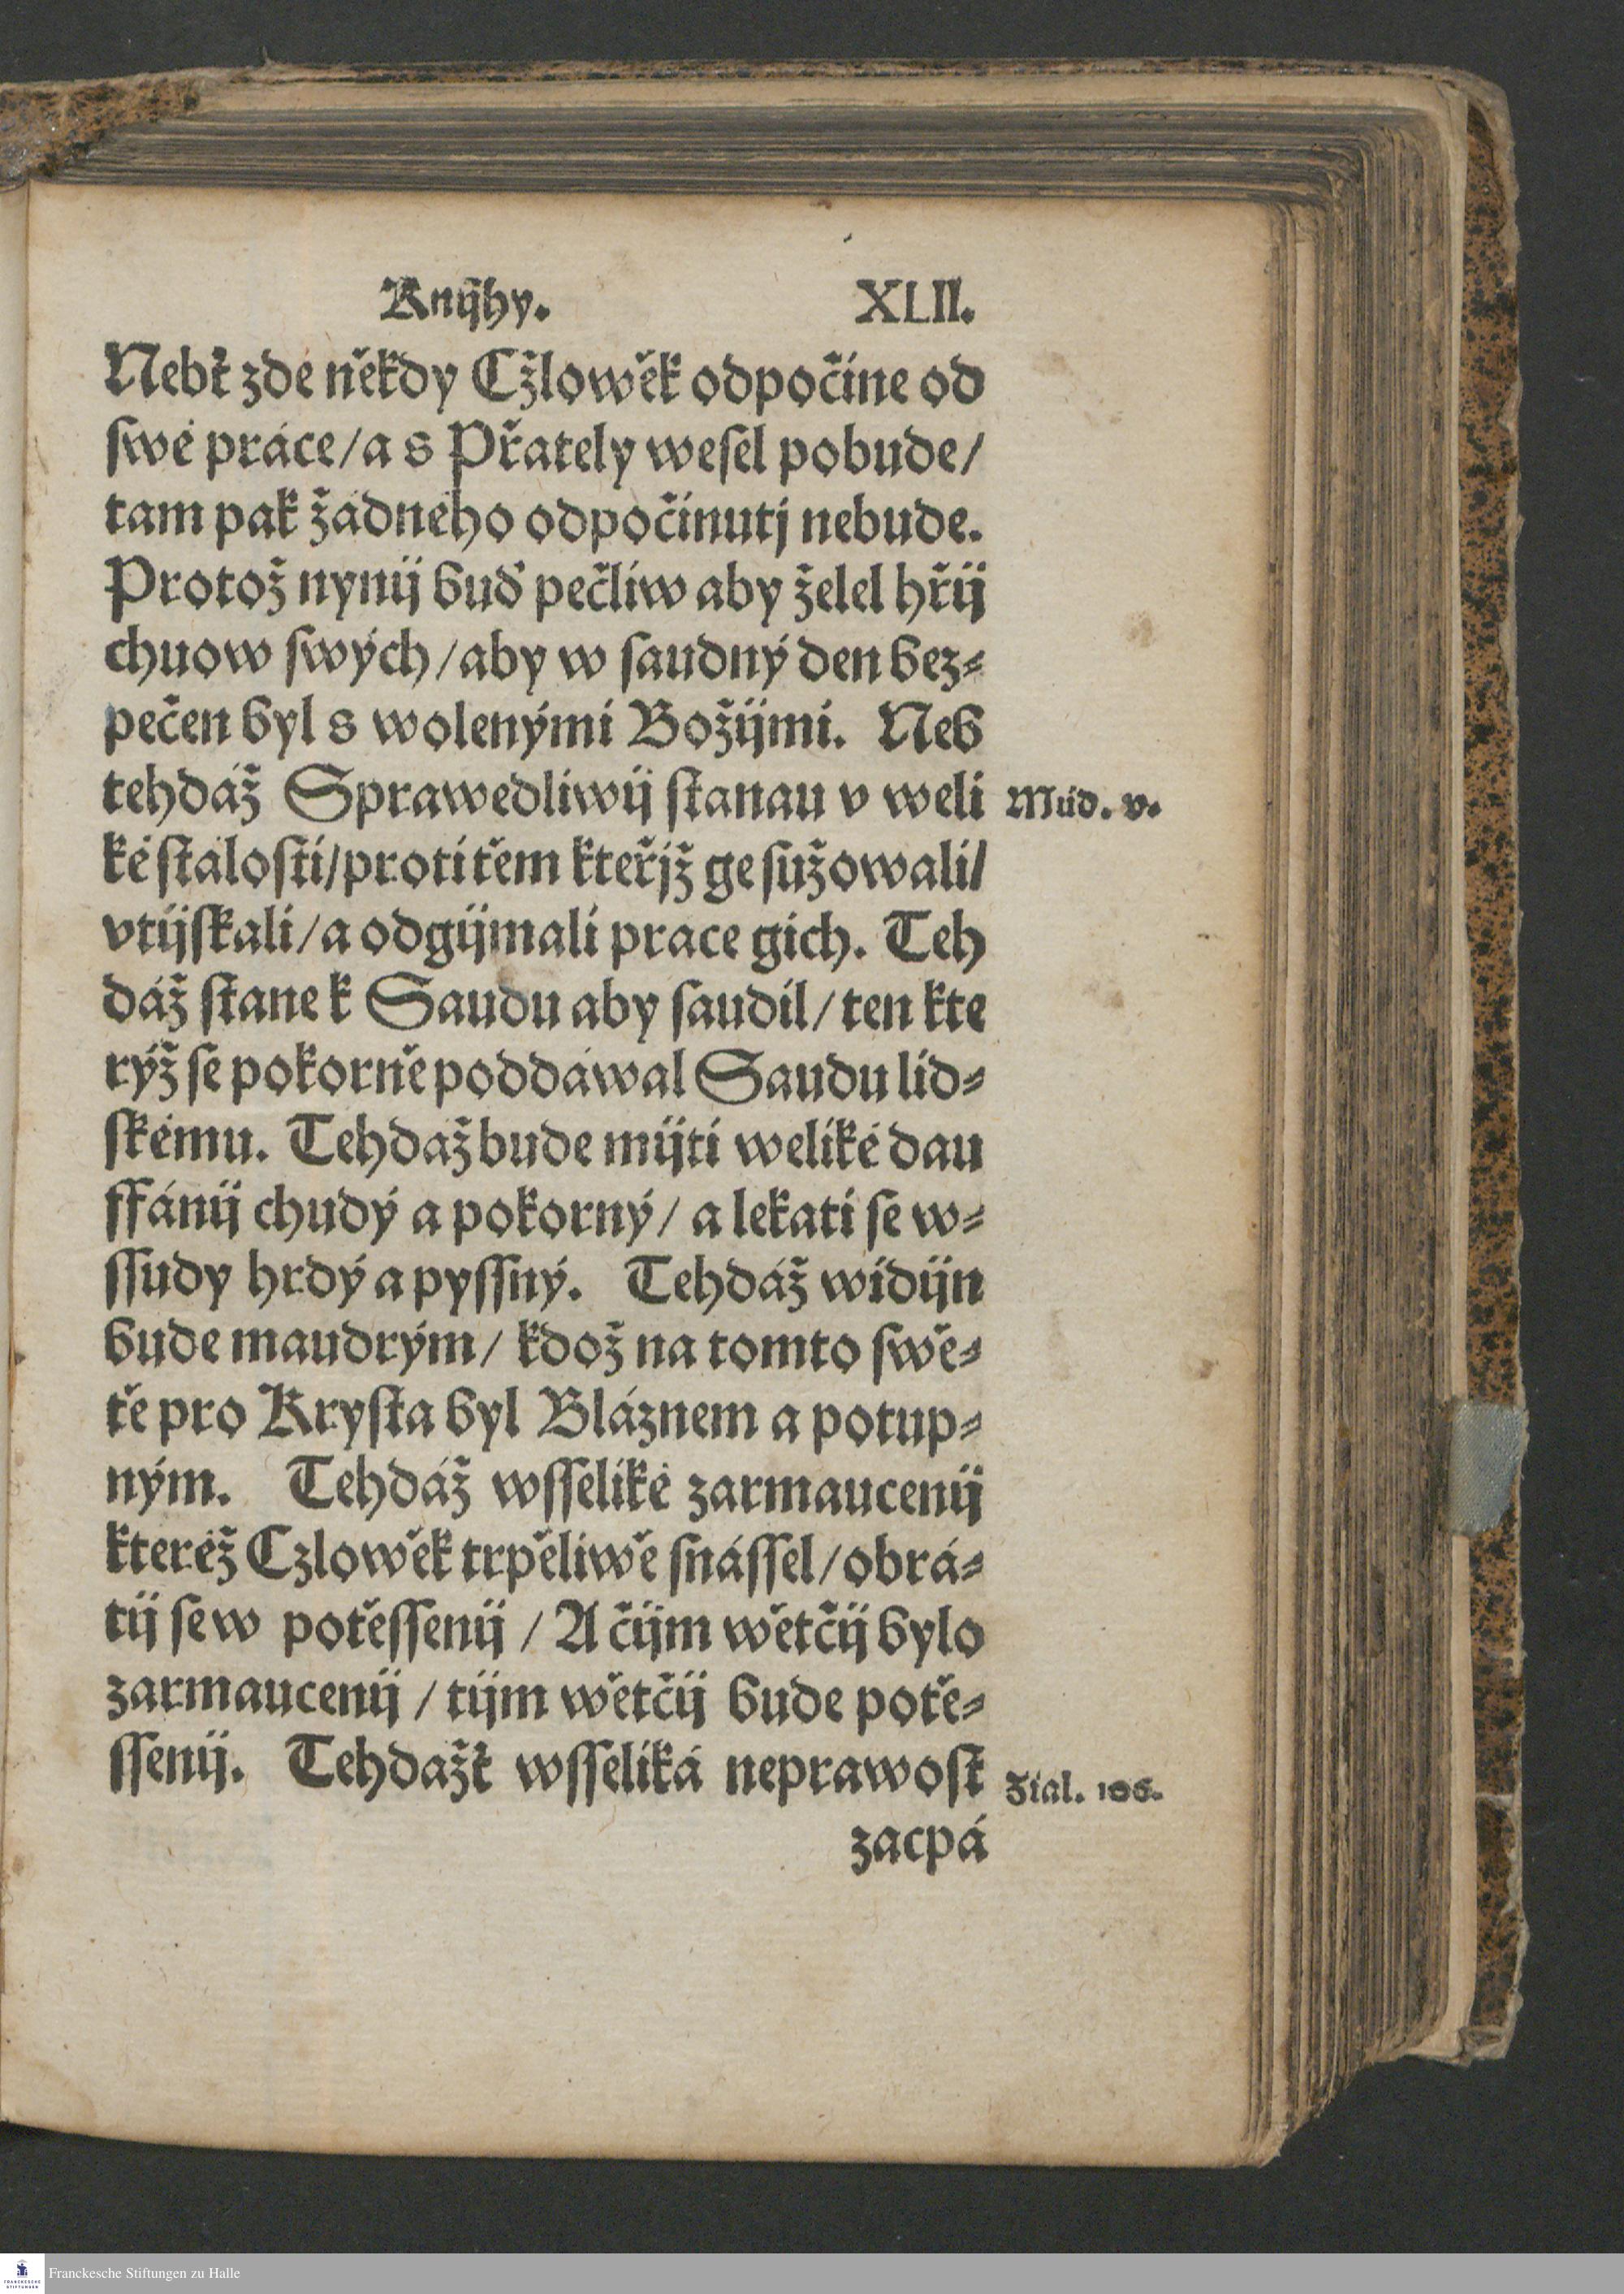 Knijhy. XLII.
Nebť zde někdy Cžlowěk odpočine od
ſwé práce/a s Přately weſel pobude/
tam pak žádného odpočinutj nebude.
Protož nynij buď pečliw aby želel hřij
chuow ſwých/aby w ſaudný den bez⸗
pečen byl s wolenými Božijmi. Neb
tehdáž Sprawedliwij ſtanau v weli
Múd. v.
ké ſtáloſti/proti těm kteřjž ge ſužowali/
vtijſkali/a odgijmali prace gich. Teh
dáž ſtane k Saudu aby ſaudil/ten kte
rýž ſe pokorně poddáwal Saudu lid⸗
ſkému. Tehdaž bude mijti weliké dau
ffánij chudý a pokorný/ a lekati ſe w⸗
ſſudy hrdý a pyſſný. Tehdáž widijn
bude maudrým/ kdož na tomto ſwě⸗
tě pro Kryſta byl Bláznem a potup⸗
ným. Tehdáž wſſeliké zarmaucenij
kteréž Czlowěk trpěliwě ſnáſſel/obrá⸗
tij ſe w potěſſenij / A čijm wětčij bylo
zarmaucenij / tijm wětčij bude potě⸗
ſſenij. Tehdažť wſſeliká neprawoſt
Žial. 106.
zacpá
Franckesche Stiftungen zu Halle